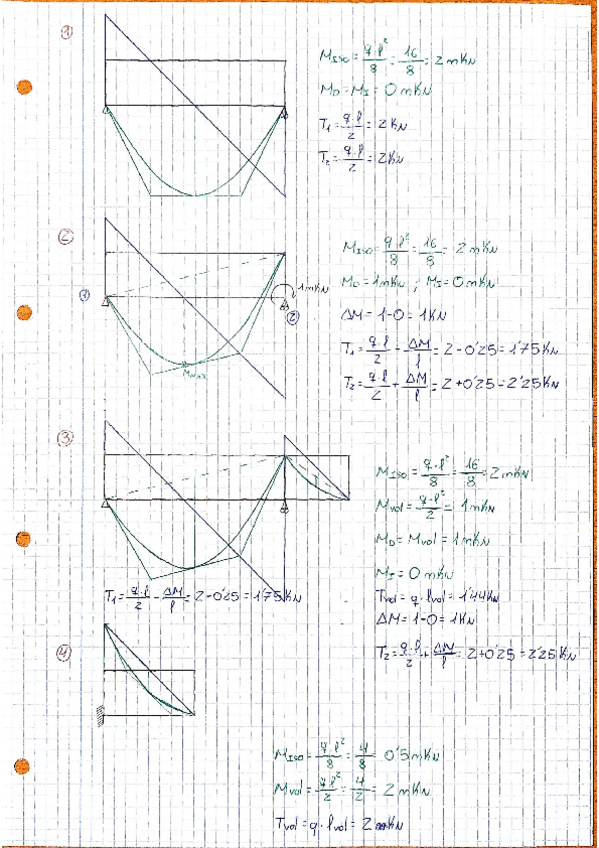 ①
M_ISO = q·l²/8 = 16/8 = 2 mKN
M_D = M_I = 0 mKN
T₁ = q·l/2 = 2 KN
T₂ = q·l/2 = 2 KN
②
M_ISO = q·l²/8 = 16/8 = 2 mKN
① 1 mKN M_D = 1 mKN ; M_I = 0 mKN
②
ΔM = 1-0 = 1 KN
T₁ = q·l/2 - ΔM/l = 2-0'25 = 1'75 KN
M_MAX
T₂ = q·l/2 + ΔM/l = 2+0'25 = 2'25 KN
③
M_ISO = q·l²/8 = 16/8 = 2 mKN
M_vol = q·l²/2 = 1 mKN
M_D = M_vol = 1 mKN
M_I = 0 mKN
T₁ = q·l/2 - ΔM/l = 2-0'25 = 1'75 KN
T_vol = q·l_vol = 1'44 KN
ΔM = 1-0 = 1 KN
T₂ = q·l/2 + ΔM/l = 2+0'25 = 2'25 KN
④
M_ISO = q·l²/8 = 4/8 = 0'5 mKN
M_vol = q·l²/2 = 4/2 = 2 mKN
T_vol = q·l_vol = 2 KN